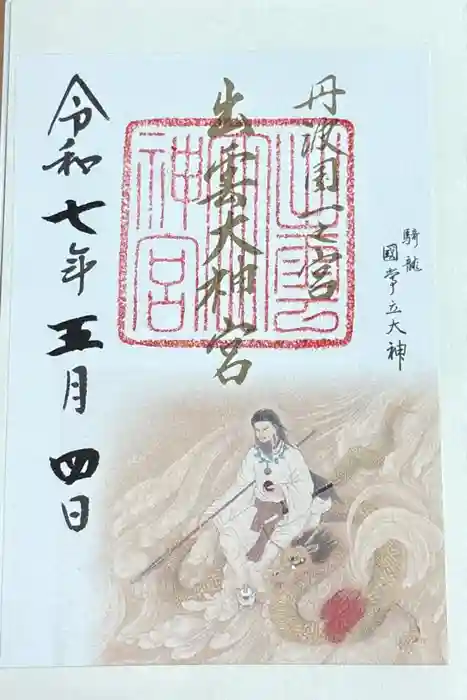 丹波國一之宮
出雲大神宮
令和七年五月四日
騎龍
國常立大神
出雲大神宮